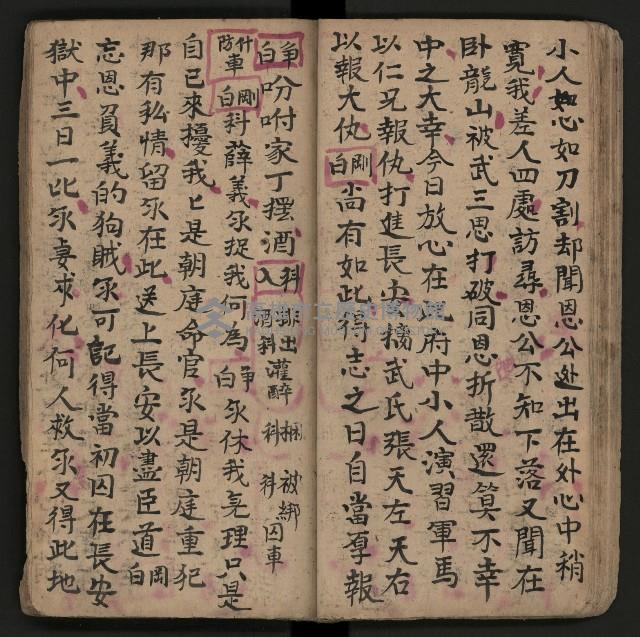 小人如心如刀割却聞恩公逃出在外心中稍
寬我差人四處訪尋恩公不知下落又聞在
卧龍山被武三思打破同恩折散還算不幸
中之大幸今日放心在此府中小人演習軍馬
以仁兄報仇打進長安擒武氏張天左天右
以報大仇 剛白 尚有如此得志之日自當厚報
争白 吩咐家丁擺酒 科入 排出酒科 灌醉科 捆 被綁科 囚車
什防車 剛白 科薛義尔捉我何為 争白 尔休我無理只是
自已來擾我匕是朝庭命官尔是朝庭重犯
那有私情留尔在此送上長安以盡臣道 岡白
忘恩負義的狗賊尔可記得當初囚在長安
獄中三日一比尔妻求化何人救尔又得此地
高雄市立歷史博物館